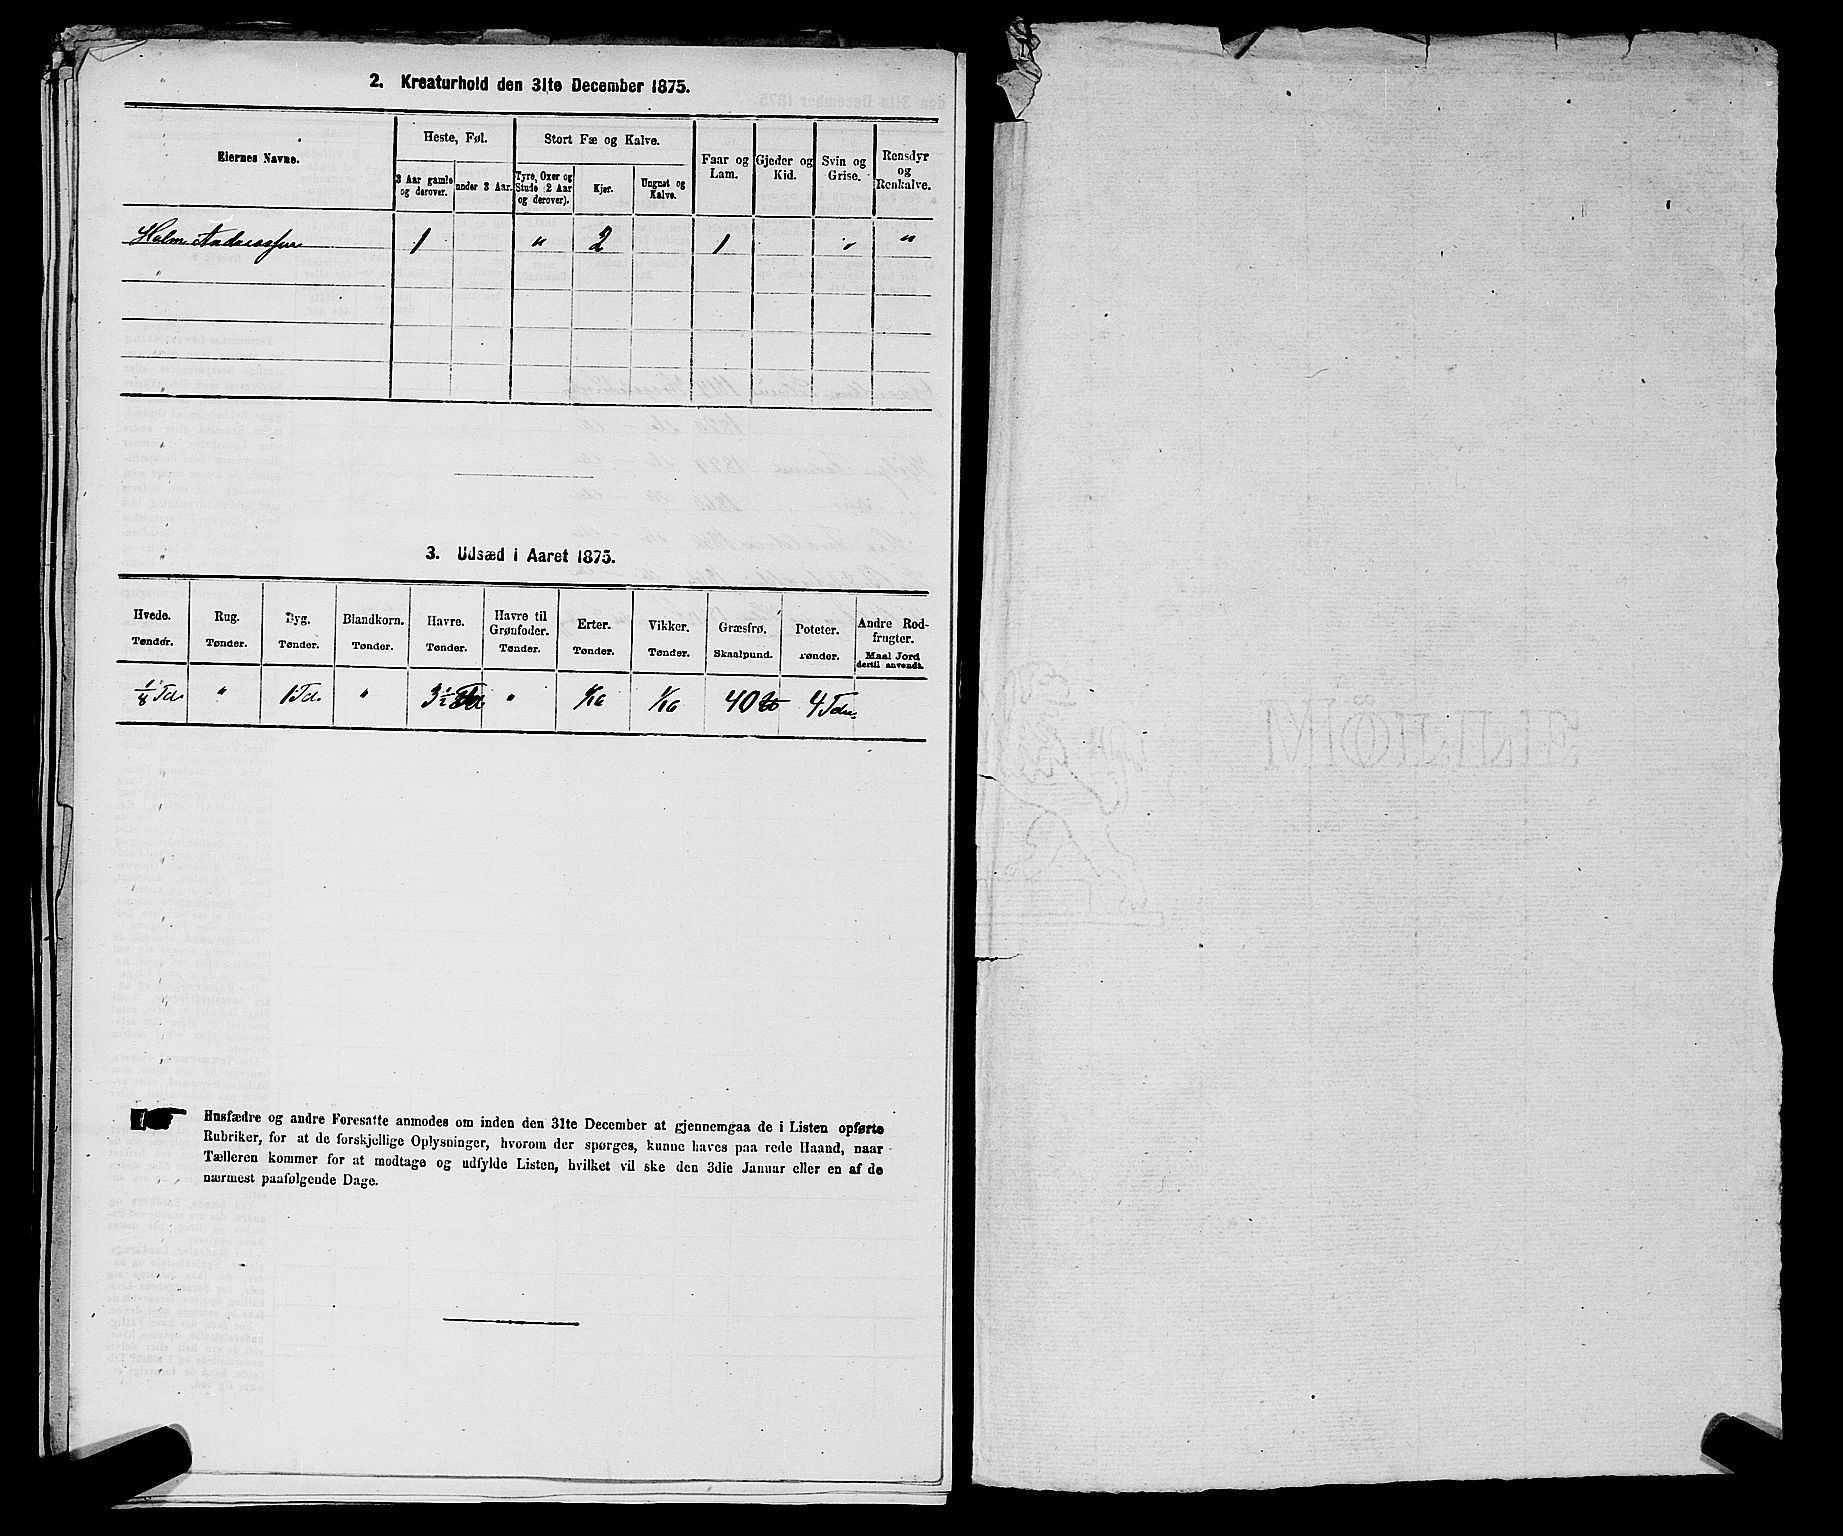 2. Kreaturhold den 31te December 1875.
Eiernes Navne.
Heste, Føl.
3 Aar gamle og derover.
under 3 Aar.
Stort Fæ og Kalve.
Tyre, Oxer og Stude (2 Aar og derover).
Kjør.
Ungnøt og Kalve.
Faar og Lam.
Gjeder og Kid.
Svin og Grise.
Rensdyr og Renkalve.
1 " 2 1 " "
3. Udsæd i Aaret 1875.
Hvede. Rug. Byg. Blandkorn. Havre. Havre til Grønfoder. Erter. Vikker. Græsfrø. Poteter. Andre Rodfrugter.
Tønder. Tønder. Tønder. Tønder. Tønder. Tønder. Tønder. Tønder. Skaalpund. Tønder. Maal Jord dertil anvendt.
1/8 Td. " 1 Td. " 3 1/2 " 1/16 1/16 40 4 Tdr.
Husfædre og andre Foresatte anmodes om inden den 31te December at gjennemgaa de i Listen opførte
Rubriker, for at de forskjellige Oplysninger, hvorom der spørges, kunne haves paa rede Haand, naar
Tælleren kommer for at modtage og udfylde Listen, hvilket vil ske den 3die Januar eller en af de
nærmest paafølgende Dage.